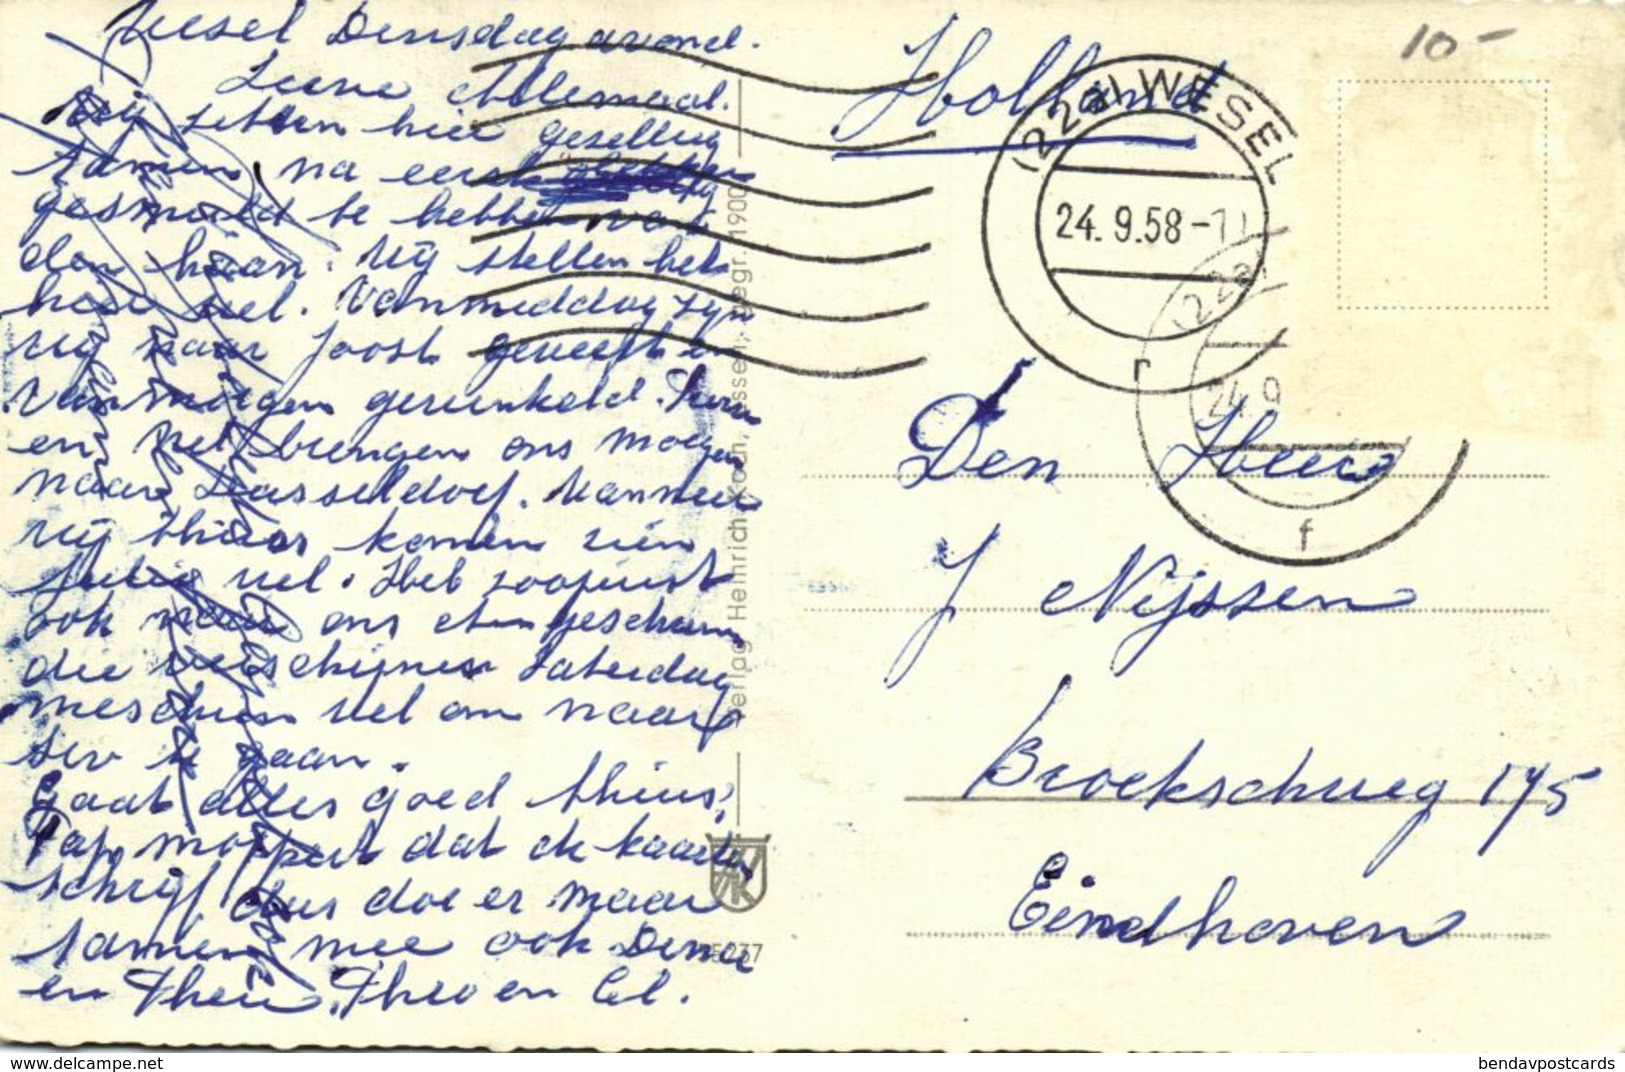 Wesel Dinsdag avond.
Lieve Allemaal.
Wij zitten hier gezellig
samen, na eerst
gesmuld te hebben van
den haan. Wij stellen het
hier wel. Vanmiddag zijn
wij naar Joost geweest en
vanmorgen gewinkeld.
en Nel brengen ons morgen
naar Dusseldorf. Wanneer
wij thuis komen zien
jullie wel. Heb zoojuist
ook naar ons geschreven
die verschijnen Zaterdag
misschien wel om naar
te gaan.
Gaat alles goed thuis?
Pap moppert dat ik kaarten
schrijf, dus doe er maar
samen mee ook
en Theo en Cel.
Holland
10-
(22a) WESEL
24.9.58-1
r
(22a)
24.9
f
Den Heer
J Nijssen
Broekscheweg 175
Eindhoven
Verlag Heinrich Koch, Wesel, gegr. 1900
HK
5237
www.delcampe.net
bendavpostcards